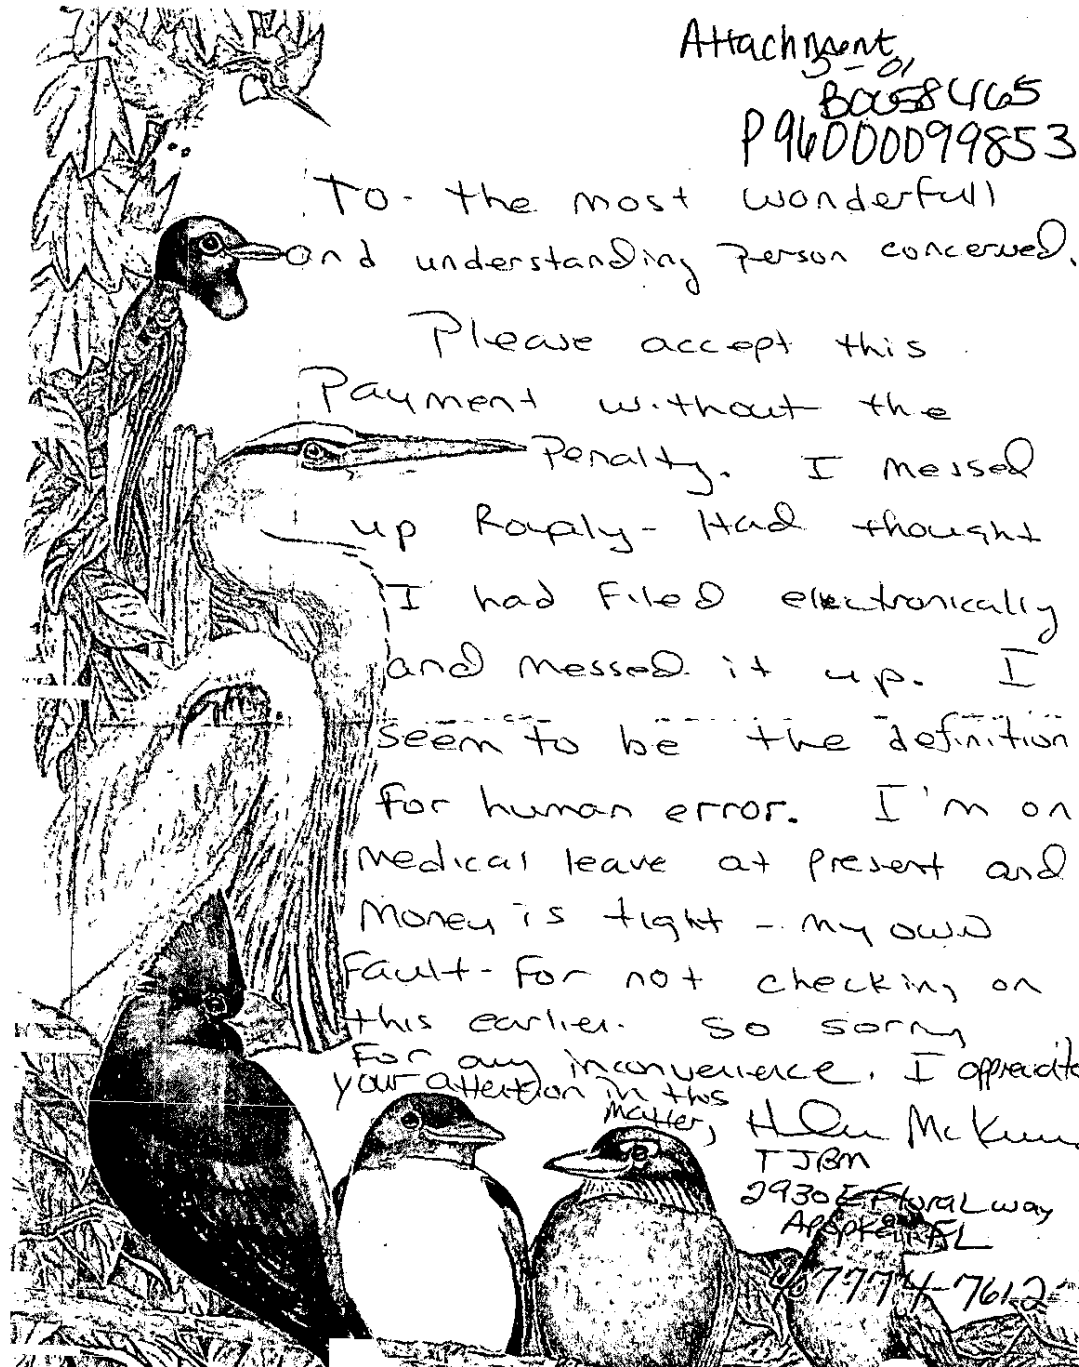 Attachment
P96000099853
To- the most wonderfull
and understanding Person concerned.
Please accept this
Payment without the
Penalty. I messed
up Royaly- Had thought
I had Filed electronically
and messed it up. I
seem to be the definition
For human error. I'm on
medical leave at present and
Money is tight - my own
Fault- For not checking on
this earlier. So sorry
For any inconvenience. I appreciate
your attention in this
matter,
TJBM
2930 E Floral way
Apopka FL